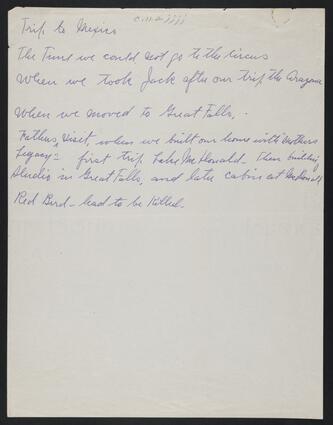 c.11.2 jjjj
Trip to Mexico
The Time we could not go to the Circus
When we took Jack after our trip the
When we moved to Great Falls,
Fathers, Visit, when we built our home with Mothers
Legacy = first trip Lake McDonald - Then building
Studio in Great Falls, and later cabin at McDonald
Red Bird - had to be Killed -